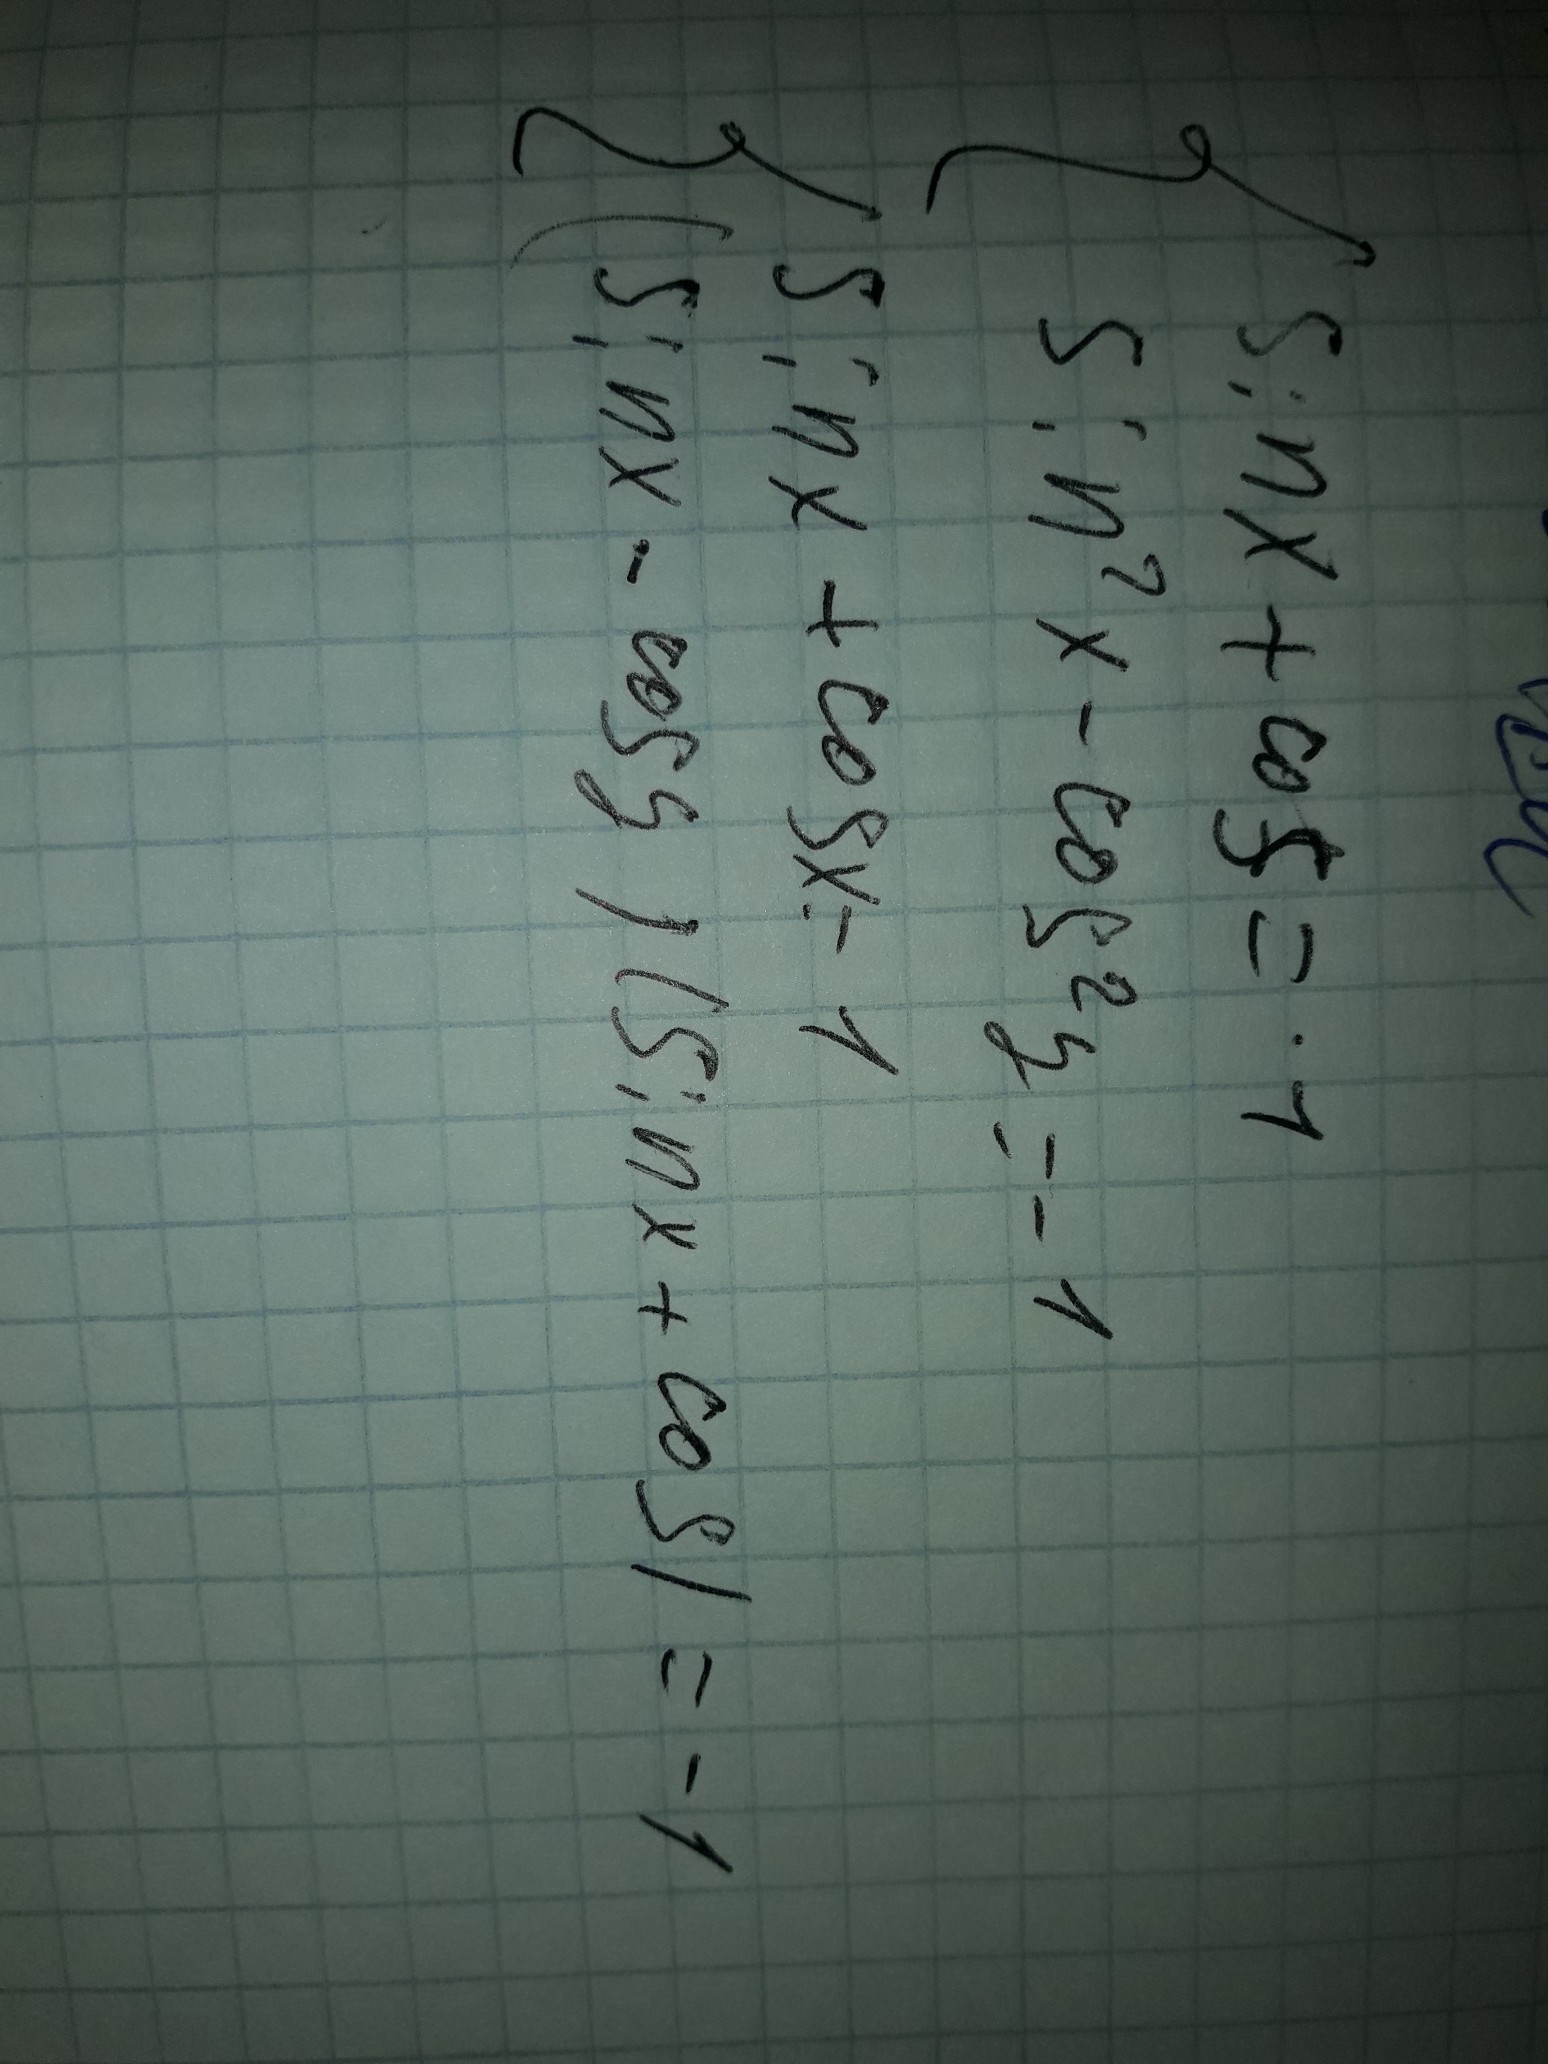 sinx + cos = -1
sin²x - cos²y = -1
sinx + cosx = -1
(sinx - cosy)(sinx + cos) = -1